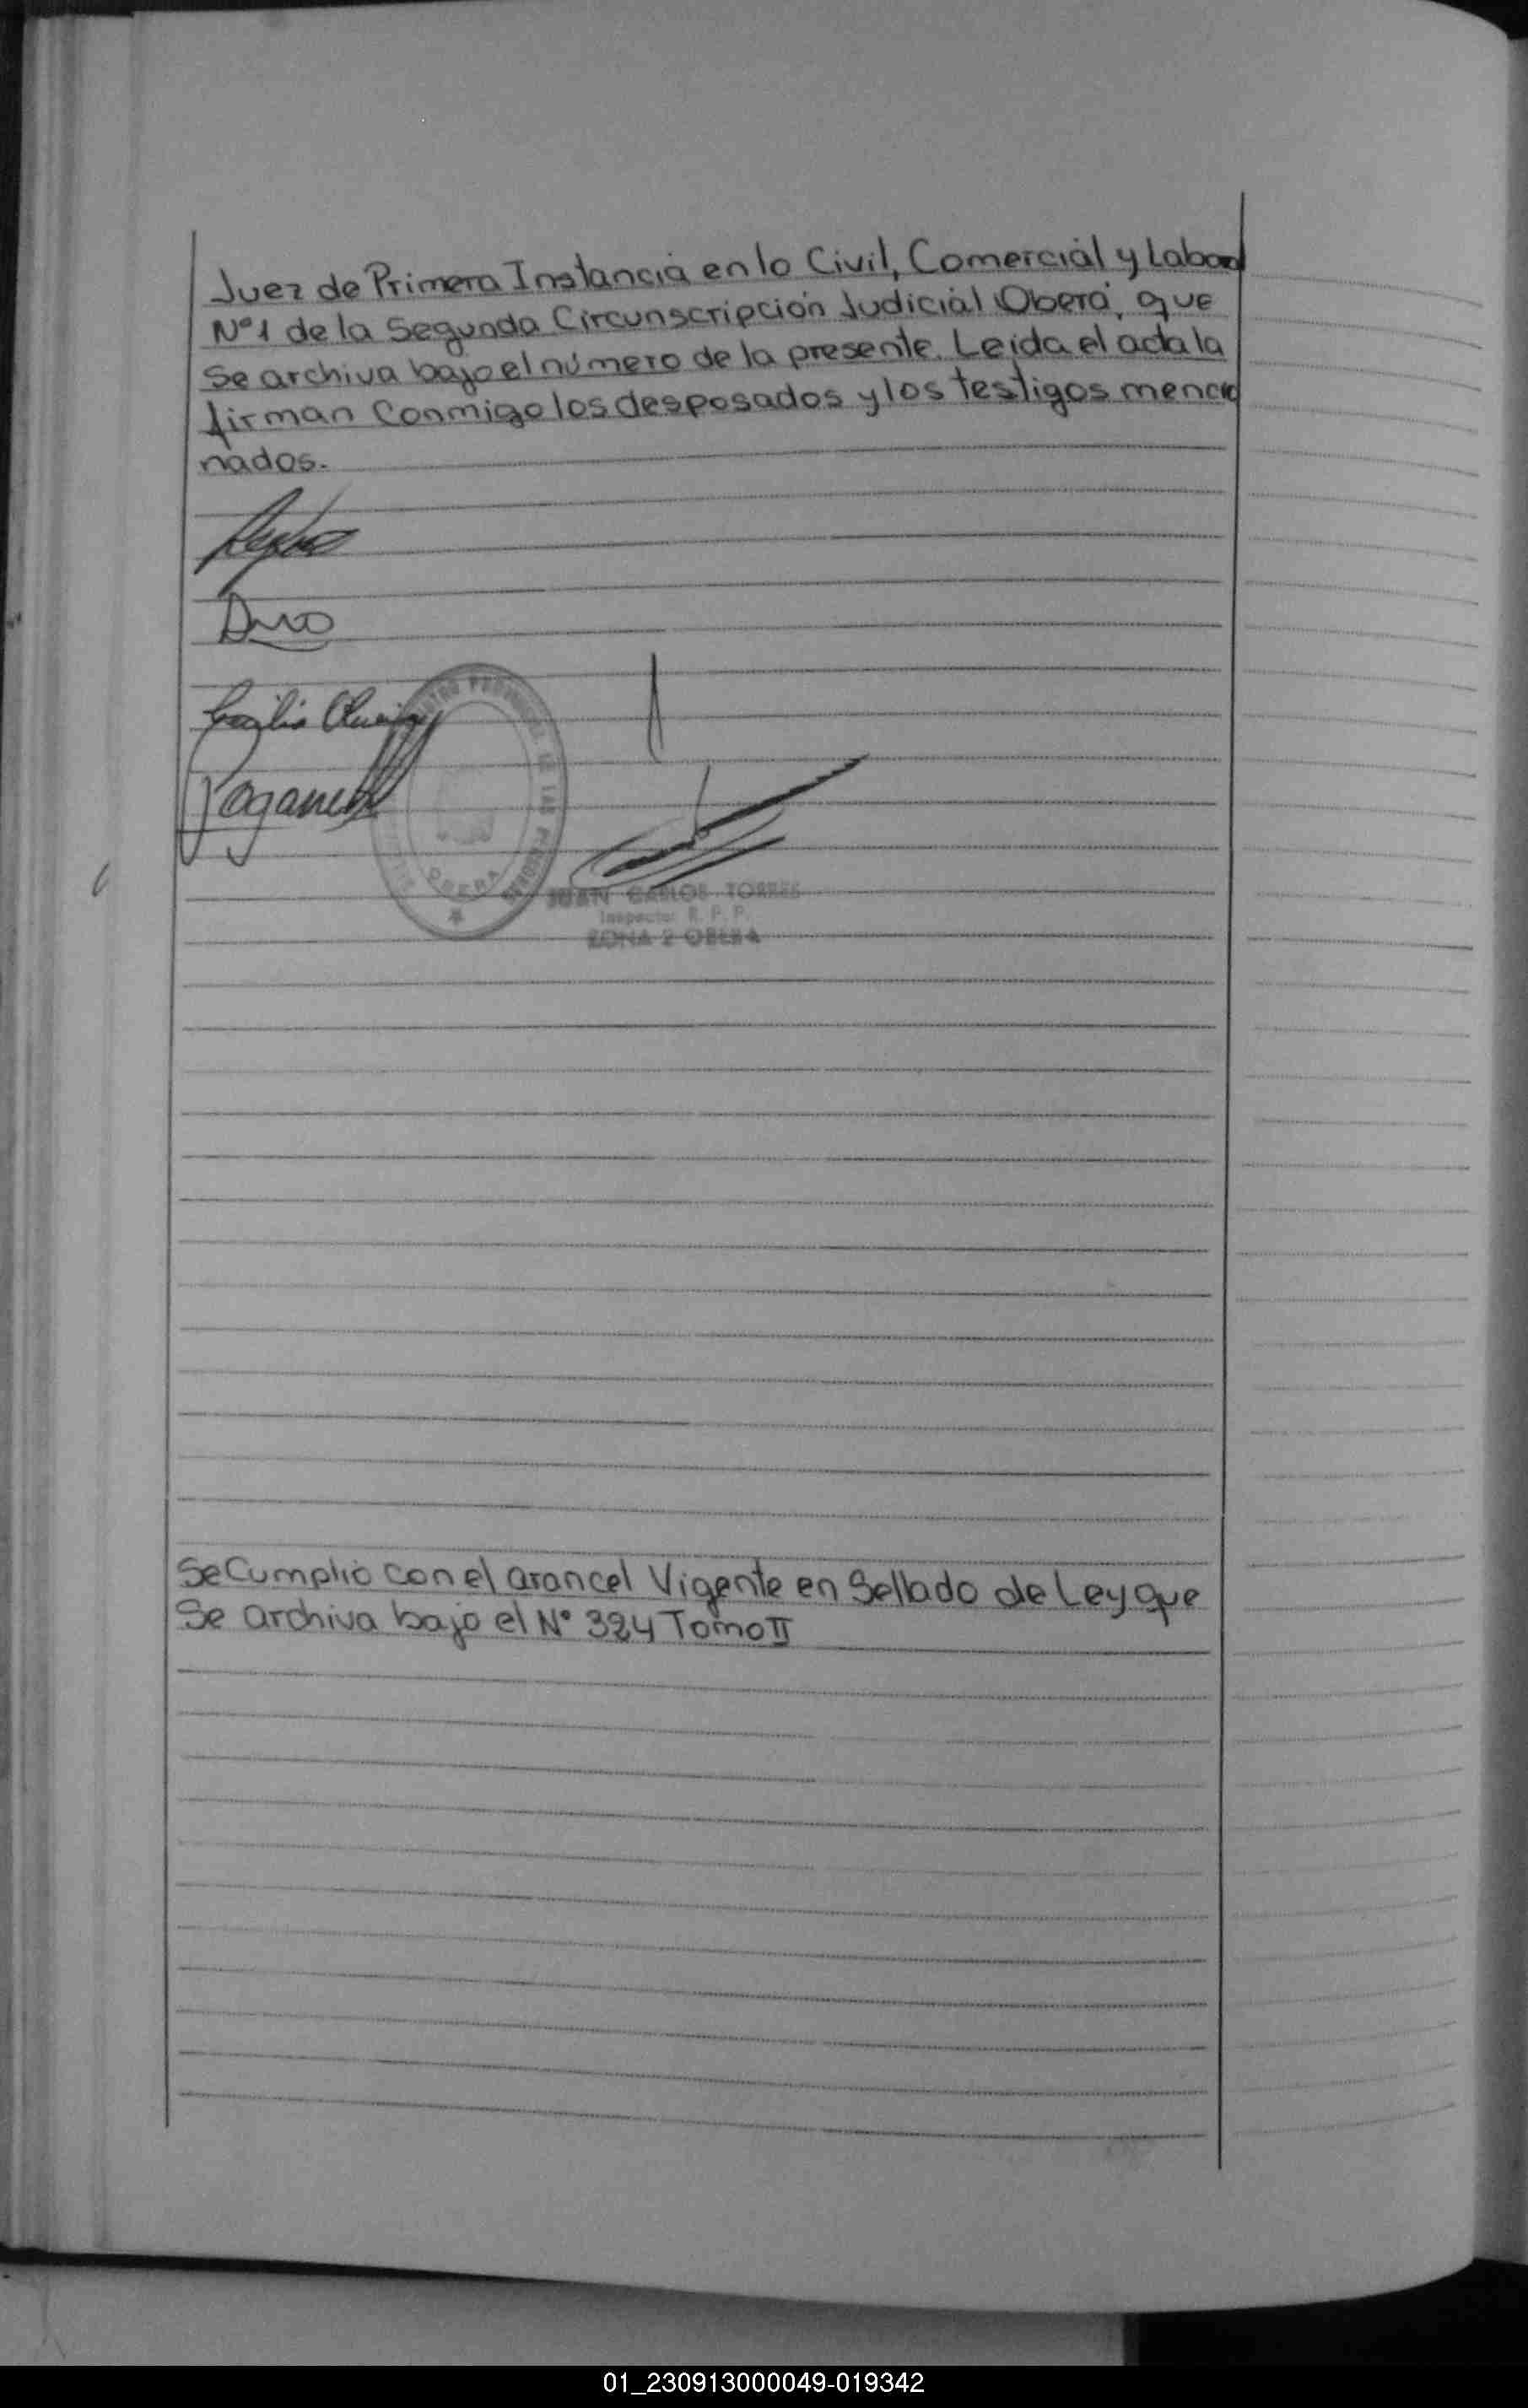 Juez de Primera Instancia en lo Civil, Comercial y Laboral
Nº1 de la Segunda Circunscripción Judicial Oberá, que
Se archiva bajo el número de la presente. Leída el acta la
firman Conmigo los desposados y los testigos mencio
nados.
OBERA
JUAN CARLOS TORRES
Inspector R. P. P.
ZONA 2 OBERA
Se Cumplió con el arancel Vigente en Sellado de Ley que
Se archiva bajo el Nº 324 Tomo II
01_230913000049-019342